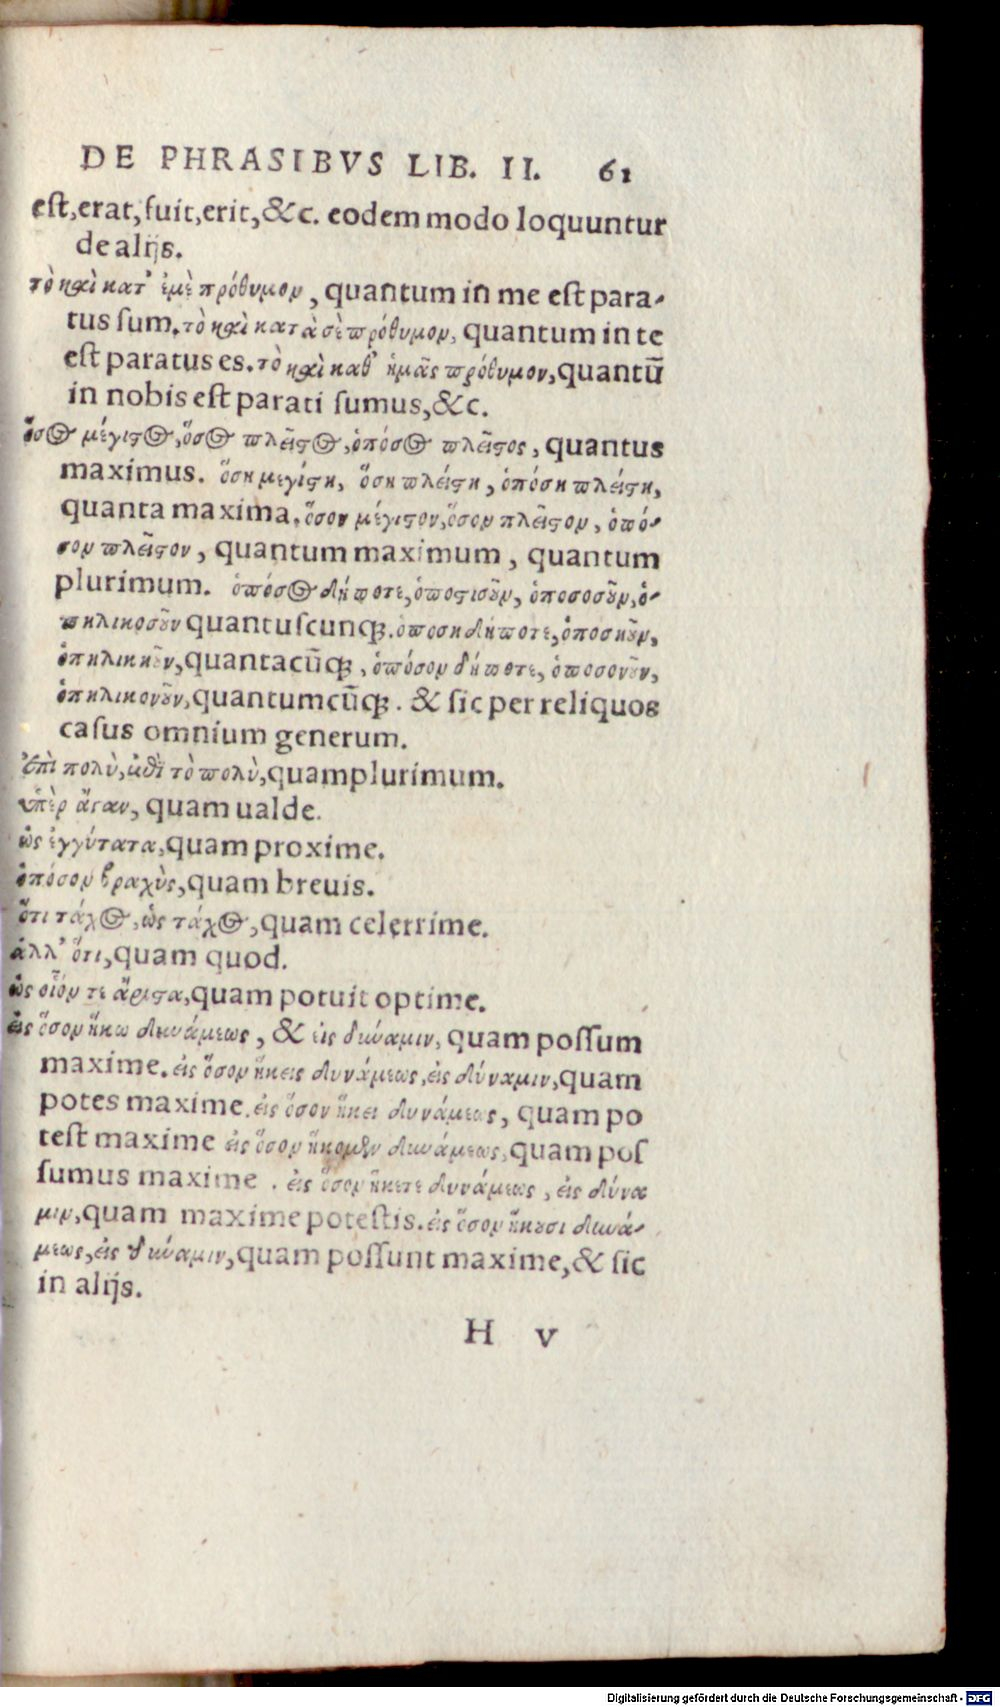 DE PHRASIBVS LIB. II. 61
est,erat,fuit,erit,&c. eodem modo loquuntur
de alijs.
τὸ καὶ κατ' ἐμὲ πρόθυμον, quantum in me est para-
tus sum. τὸ καὶ κατὰ σὲ πρόθυμον, quantum in te
est paratus es. τὸ καὶ καθ' ἡμᾶς πρόθυμον, quantū
in nobis est parati sumus,&c.
ὅσος μέγιστος, ὅσος πλεῖστος, ὁπόσος πλεῖστος, quantus
maximus. ὅση μεγίστη, ὅση πλείστη, ὁπόση πλείστη,
quanta maxima. ὅσον μέγιστον, ὅσον πλεῖστον, ὁπό-
σον πλεῖστον, quantum maximum, quantum
plurimum. ὁπόσος δήποτε, ὁποστισοῦν, ὁποσοσοῦν, ὁ-
πηλικοσοῦν quantuscunq;. ὁποση δήποτε, ὁποσηοῦν,
ὁπηλικηοῦν, quantacūq;, ὁπόσον δήποτε, ὁποσονοῦν,
ὁπηλικονοῦν, quantumcūq;. & sic per reliquos
casus omnium generum.
ἐπὶ πολὺ, ἐπὶ τὸ πολὺ, quamplurimum.
ὑπὲρ ἄγαν, quam ualde.
ὡς ἐγγύτατα, quam proxime.
ὁπόσον βραχὺς, quam breuis.
ὅτι τάχος, ὡς τάχος, quam celerrime.
ἀλλ' ὅτι, quam quod.
ὡς οἷόν τε ἄριστα, quam potuit optime.
εἰς ὅσον ἥκω δυνάμεως, & εἰς δύναμιν, quam possum
maxime. εἰς ὅσον ἥκεις δυνάμεως, εἰς δύναμιν, quam
potes maxime. εἰς ὅσον ἥκει δυνάμεως, quam po
test maxime εἰς ὅσον ἥκομεν δυνάμεως, quam pos
sumus maxime. εἰς ὅσον ἥκετε δυνάμεως, εἰς δύνα
μιν, quam maxime potestis. εἰς ὅσον ἥκουσι δυνά-
μεως, εἰς δύναμιν, quam possunt maxime, & sic
in alijs.
H v
Digitalisierung gefördert durch die Deutsche Forschungsgemeinschaft - DFG